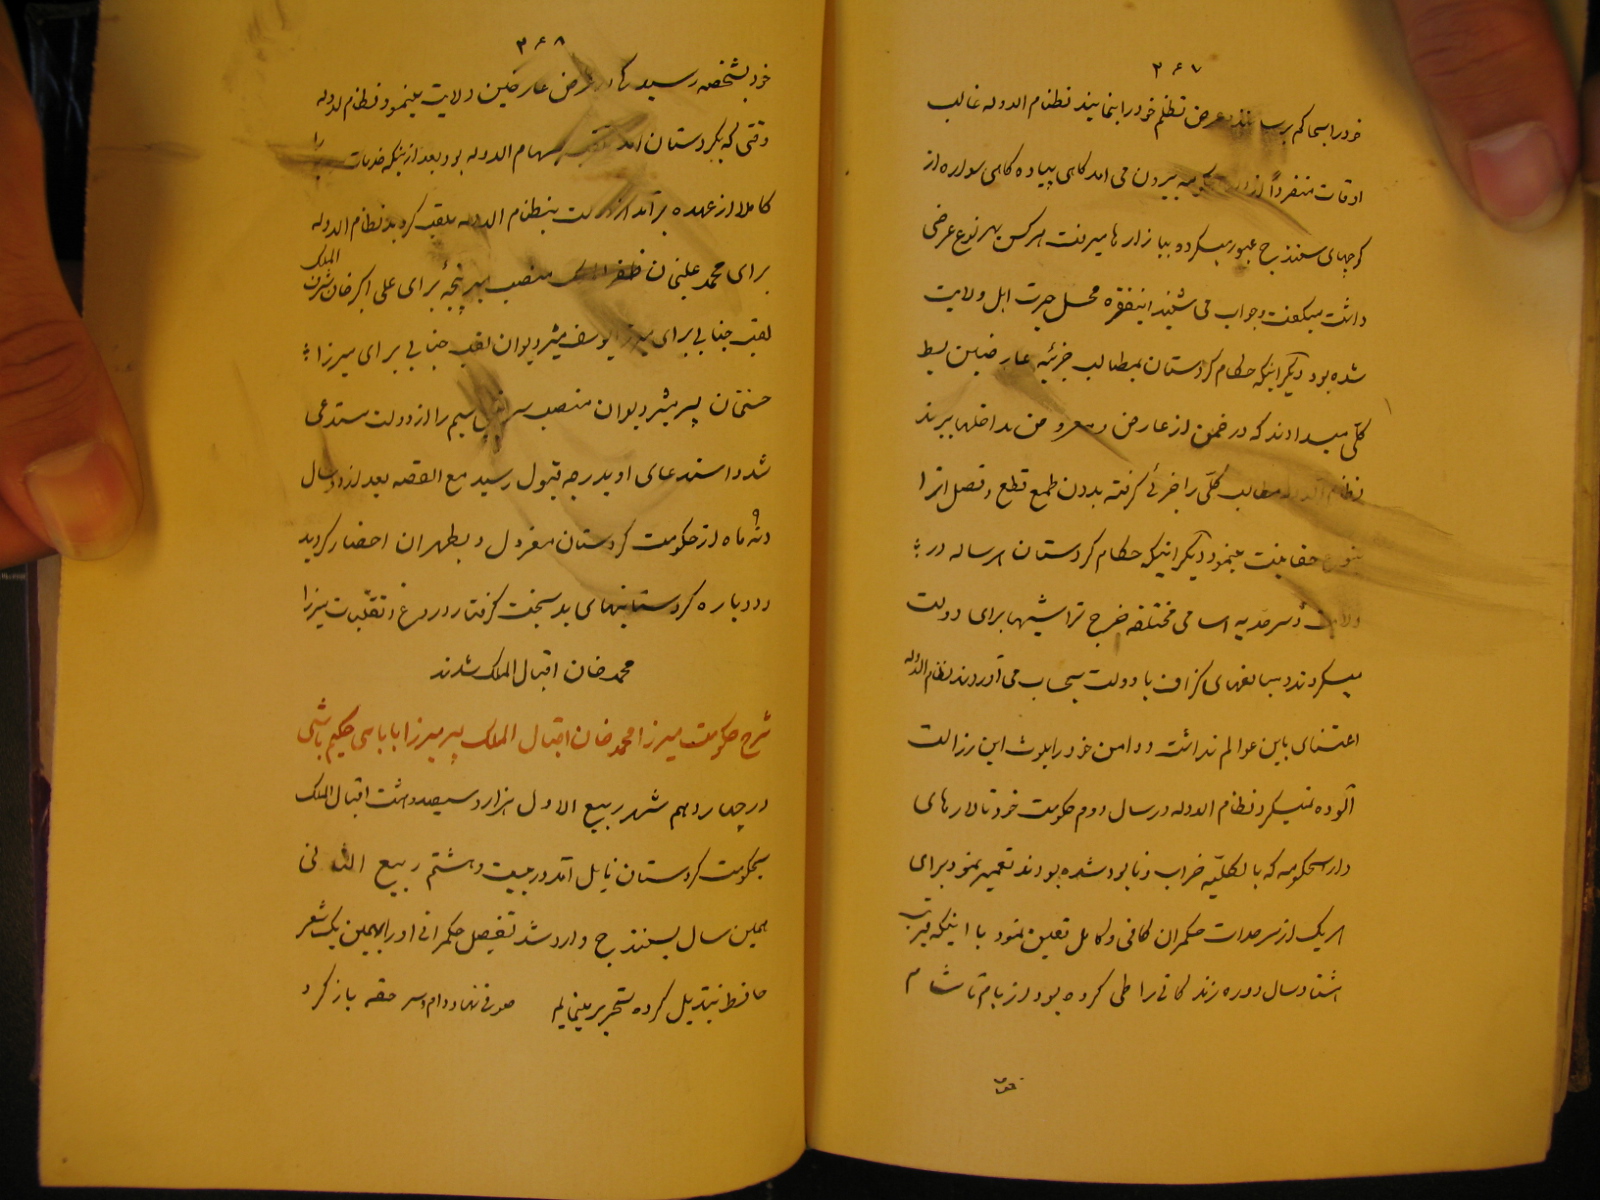 ۲۶۷
خود را بحاکم برسانند و عرض تظلم خود را بنمایند نظام الدوله غالب
اوقات منفرداً از بیرون می آمد گاهی پیاده گاهی سواره از
کوچهای سنندج عبور میکرد و ببازارها میرفت هر کس بهر نوع عرضی
داشت میگفت و جواب می شنید اینفقره محل حیرت اهل ولایت
شده بود دیگر اینکه حکام کردستان بمطالب جزئیه عارضین بسط
کلّی میدادند که در ضمن از عارض و معروض مداخلها ببرند
نظام الدوله مطالب کلّی را جزئی گرفته بدون طمع قطع و فصل آنرا
حقانیت مینمود دیگر اینکه حکام کردستان هر ساله در
ولایت و سرحدیه اسامی مختلفه خرج تراشیها برای دولت
میکردند و مبالغهای گزاف با دولت بحساب می آوردند نظام الدوله
اعتنای باین عوالم نداشت و دامن خود را بلوث این رزالت
آلوده نمیکرد نظام الدوله در سال دوم حکومت خود تالارهای
دارالحکومه که بالکلیّه خراب و نابود شده بودند تعمیر نمود برای
هر یک از سرحدات حکمران کافی و کامل تعیین نمود با اینکه قریب
هشتاد سال دوره زندگانی را طی کرده بود از بام تا شام
۲۶۸
خود بشخصه رسیدگی در عرض عارضین ولایت مینمود نظام الدوله
وقتی که بکردستان آمد ملقب سهام الدوله بود بعد از اینکه خدمات را
کاملا از عهده برآمد از دولت بنظام الدوله ملقب گردید نظام الدوله
برای محمد علیخان ظفر الملک منصب میرپنجهٔ برای علی اکبر خان شرف الملک
لقب جنابی برای میرزا یوسف مشیر دیوان لقب جنابی برای میرزا
حسنخان پسر مشیر دیوان منصب سرتیپی سیم را از دولت مستدعی
شد و استدعای او بدرجه قبول رسید مع القصه بعد از دو سال
و نه ماه از حکومت کردستان معزول و بطهران احضار گردید
و دوباره کردستانیهای بدبخت گرفتار دروغ و تقلبات میرزا
محمد خان اقبال الملک شدند
شرح حکومت میرزا محمد خان اقبال الملک پسر میرزا بابای حکیم باشی
در چهاردهم شهر ربیع الاول هزار و سیصد و هشت اقبال الملک
بحکومت کردستان نایل آمد در بیست و هشتم ربیع الثانی
همین سال بسنندج وارد شد تفصیل حکمرانی او را بهمین یک شعر
حافظ تبدیل کرده تحریر مینمایم صوفی نهاد دام و سر حقه باز کرد